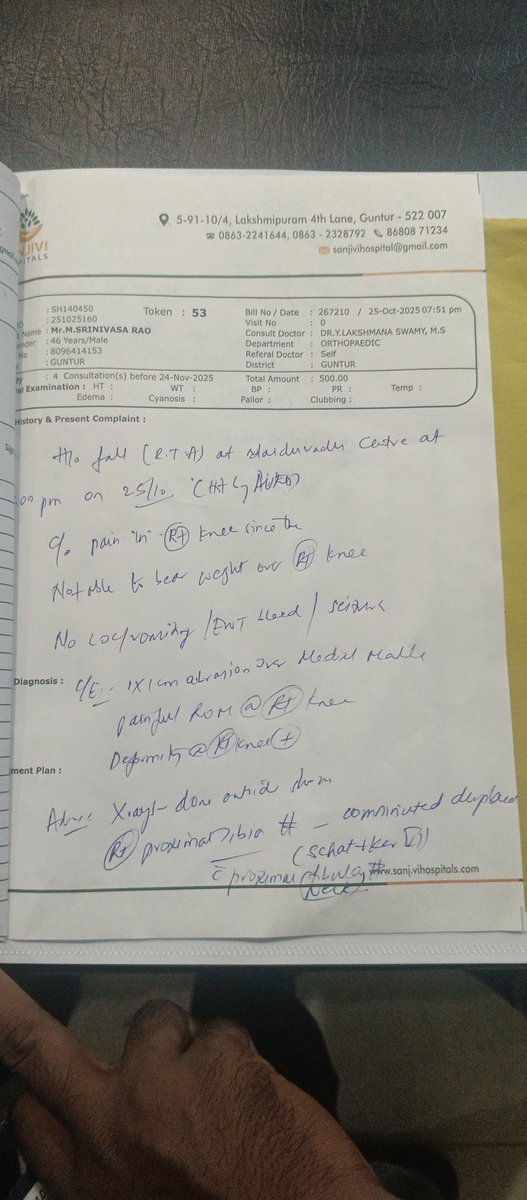 5-91-10/4, Lakshmipuram 4th Lane, Guntur - 522 007
0863-2241644, 0863 - 2328792 86808 71234
sanjivihospital@gmail.com
NJIVI
PITALS
: SH140450 Token : 53
: 251025160
Name : Mr.M.SRINIVASA RAO
ender : 46 Years/Male
No : 8096414153
: GUNTUR
: 4 Consultation(s) before 24-Nov-2025
Bill No / Date : 267210 / 25-Oct-2025 07:51 pm
Visit No : 0
Consult Doctor : DR.Y.LAKSHMANA SWAMY, M.S
Department : ORTHOPAEDIC
Referal Doctor : Self
District : GUNTUR
Total Amount : 500.00
al Examination : HT : WT : BP : PR : Temp :
Edema : Cyanosis : Pallor : Clubbing :
History & Present Complaint :
H/o fall (R.T.A) at centre at
pm on 25/10
c/o pain "in" Rt knee since then
Not able to bear weight over Rt knee
No LOC/vomiting / ENT bleed / seizure
Diagnosis : O/E:- 1x1cm abrasion over Medial Malle
painful ROM @ Rt knee
Deformity @ Rt knee +
ment Plan :
Adv:: Xrays- done outside show
Rt proximal Tibia # - comminuted displaced
(Schatzker )
c proximal #
Neck
www.sanjivihospitals.com